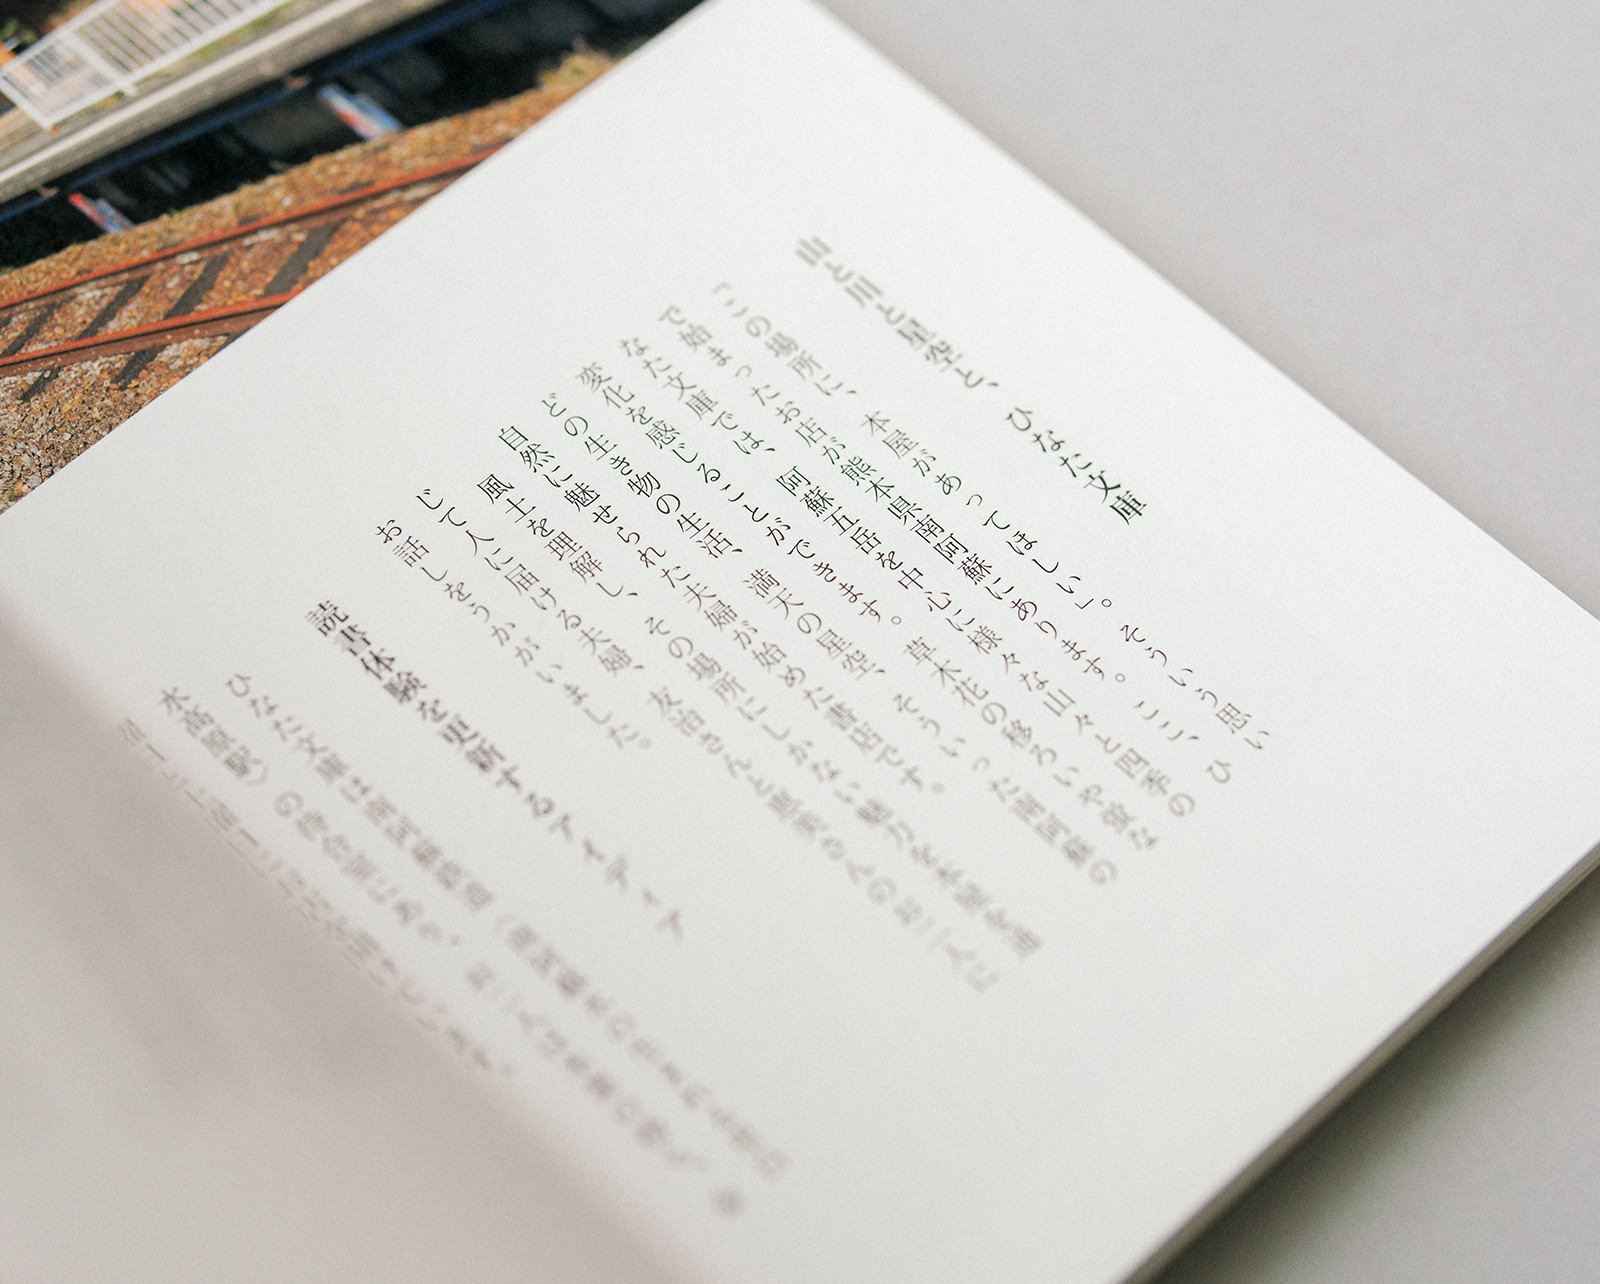 山と川と星空と、ひなた文庫
「この場所に、本屋があってほしい」。そういう思い
で始まったお店が熊本県南阿蘇にあります。ここ、ひ
なた文庫では、阿蘇五岳を中心に様々な山々と四季の
変化を感じることができます。草木花の移ろいや蛍な
どの生き物の生活、満天の星空、そういった南阿蘇の
自然に魅せられた夫婦が始めた書店です。
風土を理解し、その場所にしかない魅力を本屋を通
じて人に届ける夫婦、友治さんと恵美さんのお二人に
お話しをうかがいました。
読書体験を更新するアイディア
ひなた文庫は南阿蘇鉄道〈南阿蘇水の生まれる里白
水高原駅〉の待合室にあり、お二人は本業の傍ら、